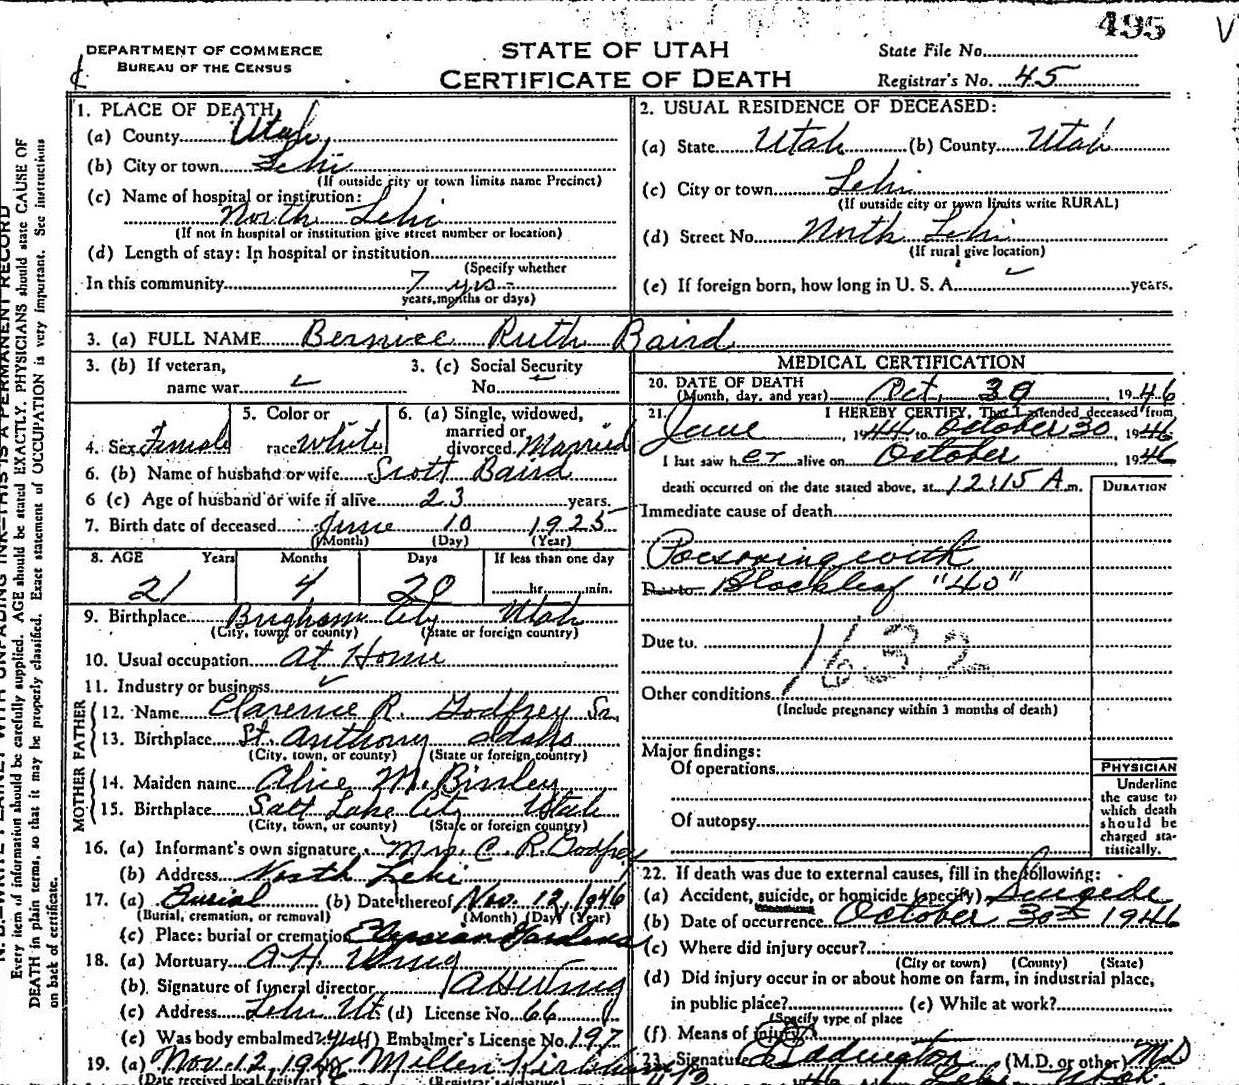 495 V
DEPARTMENT OF COMMERCE
BUREAU OF THE CENSUS
STATE OF UTAH
CERTIFICATE OF DEATH
State File No.
Registrar's No. 45
1. PLACE OF DEATH
(a) County Utah
(b) City or town Lehi
(If outside city or town limits name Precinct)
(c) Name of hospital or institution:
North Lehi
(If not in hospital or institution give street number or location)
(d) Length of stay: In hospital or institution
(Specify whether
In this community 7 yrs-
years, months or days)
2. USUAL RESIDENCE OF DECEASED:
(a) State Utah (b) County Utah
(c) City or town Lehi
(If outside city or town limits write RURAL)
(d) Street No. North Lehi
(If rural give location)
(e) If foreign born, how long in U. S. A. years.
3. (a) FULL NAME Bernice Ruth Baird
3. (b) If veteran,
name war
3. (c) Social Security
No.
4. Sex Female
5. Color or
race White
6. (a) Single, widowed,
married or
divorced Married
6. (b) Name of husband or wife Scott Baird
6 (c) Age of husband or wife if alive 23 years.
7. Birth date of deceased June 10 1925
(Month) (Day) (Year)
8. AGE Years Months Days If less than one day
21 4 20 hr. min.
9. Birthplace Brigham City Utah
(City, town or county) (State or foreign country)
10. Usual occupation At Home
11. Industry or business
FATHER
12. Name Clarence R. Godfrey Sr.
13. Birthplace St. Anthony Idaho
(City, town, or county) (State or foreign country)
MOTHER
14. Maiden name Alice M.
15. Birthplace Salt Lake City Utah
(City, town, or county) (State or foreign country)
16. (a) Informant's own signature Mrs. C. R. Godfrey
(b) Address North Lehi
17. (a) Burial (b) Date thereof Nov. 12, 1946
(Burial, cremation, or removal) (Month) (Day) (Year)
(c) Place: burial or cremation Elysian Gardens
18. (a) Mortuary A H Wing
(b) Signature of funeral director A H Wing
(c) Address Lehi Ut (d) License No. 66
(e) Was body embalmed? (f) Embalmer's License No. 197
19. (a) Nov. 12, 1946
(Date received local registrar) (Registrar's signature)
MEDICAL CERTIFICATION
20. DATE OF DEATH
(Month, day, and year) Oct. 30, 1946
21. I HEREBY CERTIFY, That I attended deceased from
June, 1944, to October 30, 1946
I last saw her alive on October, 1946
death occurred on the date stated above, at 12:15 A m.
DURATION
Immediate cause of death
Poisoning with
Due to Blackleaf "40"
Due to. 1632
Other conditions
(Include pregnancy within 3 months of death)
Major findings:
Of operations
Of autopsy
PHYSICIAN
Underline
the cause to
which death
should be
charged sta-
tistically.
22. If death was due to external causes, fill in the following:
(a) Accident, suicide, or homicide (specify)
(b) Date of occurrence October 30th 1946
(c) Where did injury occur?
(City or town) (County) (State)
(d) Did injury occur in or about home on farm, in industrial place,
in public place? (e) While at work?
(Specify type of place
(f) Means of injury
23. Signature (M.D. or other) MD
Every item of information should be carefully supplied. AGE should be stated EXACTLY. PHYSICIANS should state CAUSE OF
DEATH in plain terms, so that it may be properly classified. Exact statement of OCCUPATION is very important. See instructions
on back of certificate.